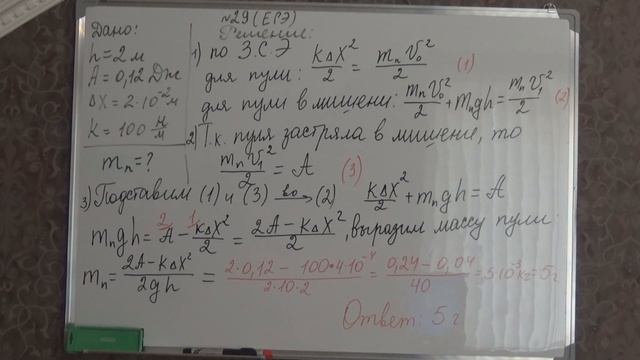 №29 (ЕГЭ)
Дано:
h = 2 м
A = 0,12 Дж
ΔX = 2·10⁻² м
k = 100 Н/м
mₙ = ?
Решение:
1) по З.С.Э
для пули: kΔX²/2 = mₙV₀²/2 (1)
для пули в мишени: mₙV₀²/2 + mₙgh = mₙV₁²/2 (2)
2) Т.к. пуля застряла в мишени, то
mₙV₁²/2 = A (3)
3) Подставим (1) и (3) во → (2) kΔX²/2 + mₙgh = A
mₙgh = A - kΔX²/2 = 2A - kΔX²/2, выразим массу пули:
mₙ = 2A - kΔX²/2gh = 2·0,12 - 100·4·10⁻⁴/2·10·2 = 0,24 - 0,04/40 = 5·10⁻³ кг = 5 г
Ответ: 5 г